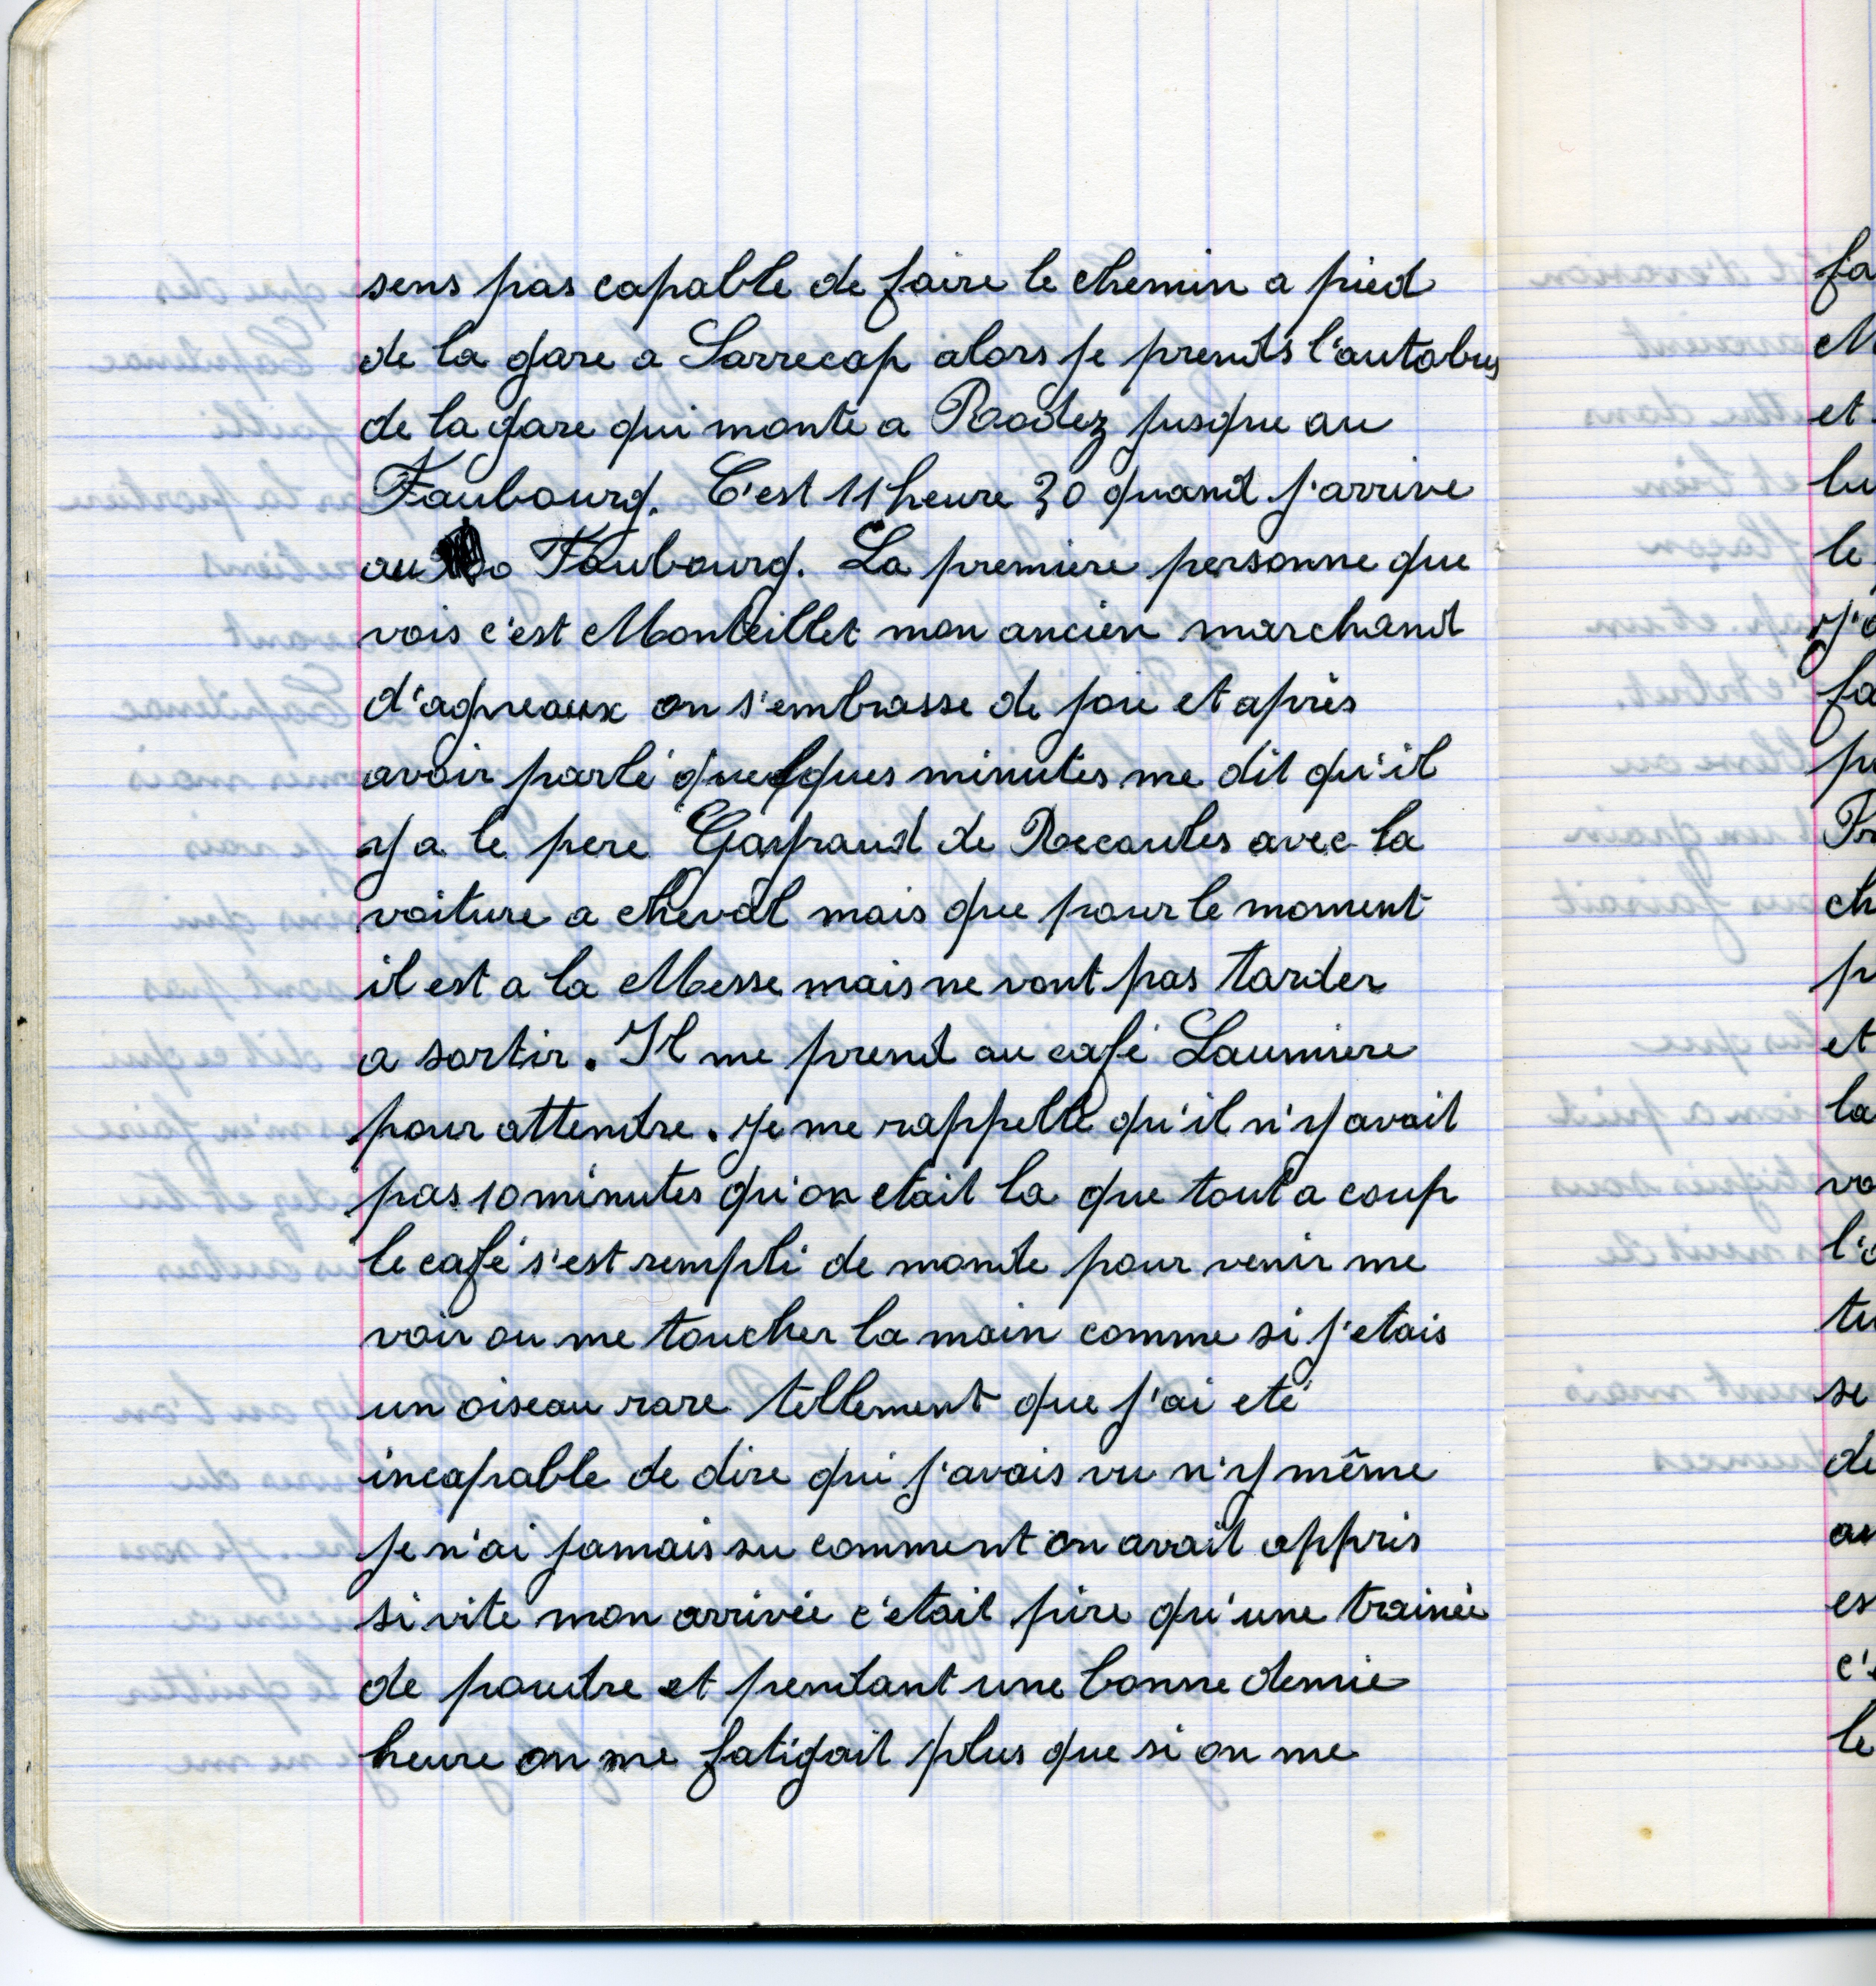 sens pas capable de faire le chemin a pied
de la gare a Sarrecap alors je prends l'autobus
de la gare qui monte a Rodez jusque au
Faubourg. C'est 11 heure 30 quand j'arrive
au Faubourg. La premiere personne que
vois c'est Monteillet mon ancien marchand
d'agneaux on s'embrasse de joie et après
avoir parlé quelques minutes me dit qu'il
y a le pere de Recoules avec la
voiture a cheval mais que pour le moment
il est a la Messe mais ne vont pas tarder
a sortir. Il me prend au café Laumiere
pour attendre. Je me rappelle qu'il n'y avait
pas 10 minutes qu'on etait la que tout a coup
le café s'est rempli de monde pour venir me
voir ou me toucher la main comme si j'etais
un oiseau rare tellement que j'ai eté
incapable de dire qui j'avais vu n'y même
je n'ai jamais su comment on avait appris
si vite mon arrivée c'etait pire qu'une trainée
de poudre et pendant une bonne demie
heure on me fatigait plus que si on me